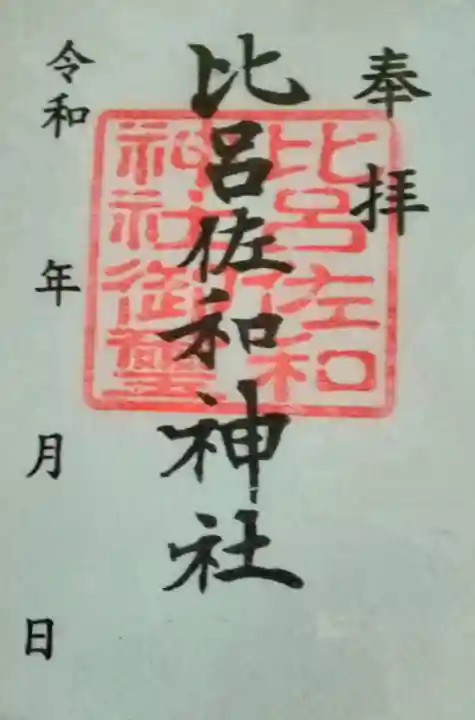 奉拝
比呂佐和神社
令和 年 月 日
比呂佐和
神社御璽